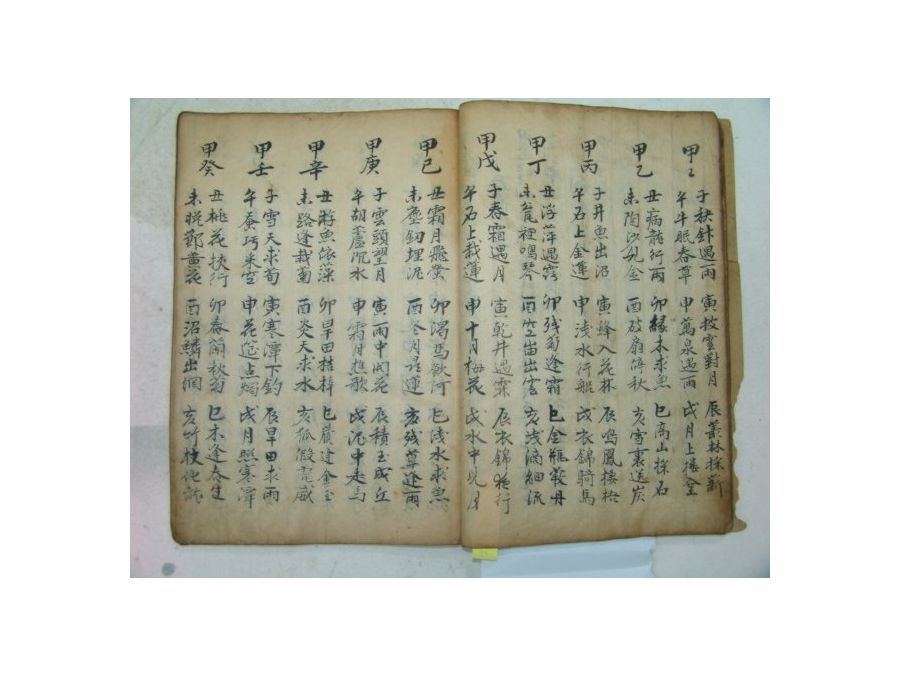 甲〻
子秧針遇雨 寅披雲對月 辰叢林採薪
午牛眠春草 申萬泉遇雨 戌月上樓臺
甲乙
丑病龍行雨 卯緣木求魚 巳高山採石
未陶沙見金 酉破扇停秋 亥雪裏送炭
甲丙
子井魚出沼 寅蜂入花林 辰鳴鳳棲梧
午石上金蓮 申浅水行船 戌衣錦騎馬
甲丁
丑浮萍遇 卯残菊逢霜 巳金
未瓮裡鳴琴 酉空岫出雲 亥浅滴細流
甲戊
子春霜遇月 寅乾井遇霖 辰衣錦夜行
午石上栽蓮 申十月梅花 戌水中見月
甲己
丑霜月飛螢 卯渴馬飲河 巳浅水求魚
未塵釼埋泥 酉冬月尋蓮 亥残草逢雨
甲庚
子雲頭望月 寅雨中開花 辰積玉成丘
午胡蘆沉水 申霜月樵歌 戌泥中走馬
甲辛
丑游魚依藻 卯旱田桔槹 巳歲逢金玉
未路逢栽菊 酉炎天求水 亥狐假虎威
甲壬
子雪天求荀 寅寒潭下釣 辰旱田求雨
午蚕巧 申花筵点燭 戌月照寒潭
甲癸
丑桃花挾行 卯春蘭秋菊 巳木逢春生
未晩節黄花 酉沼鱗出澗 亥竹杖化龍